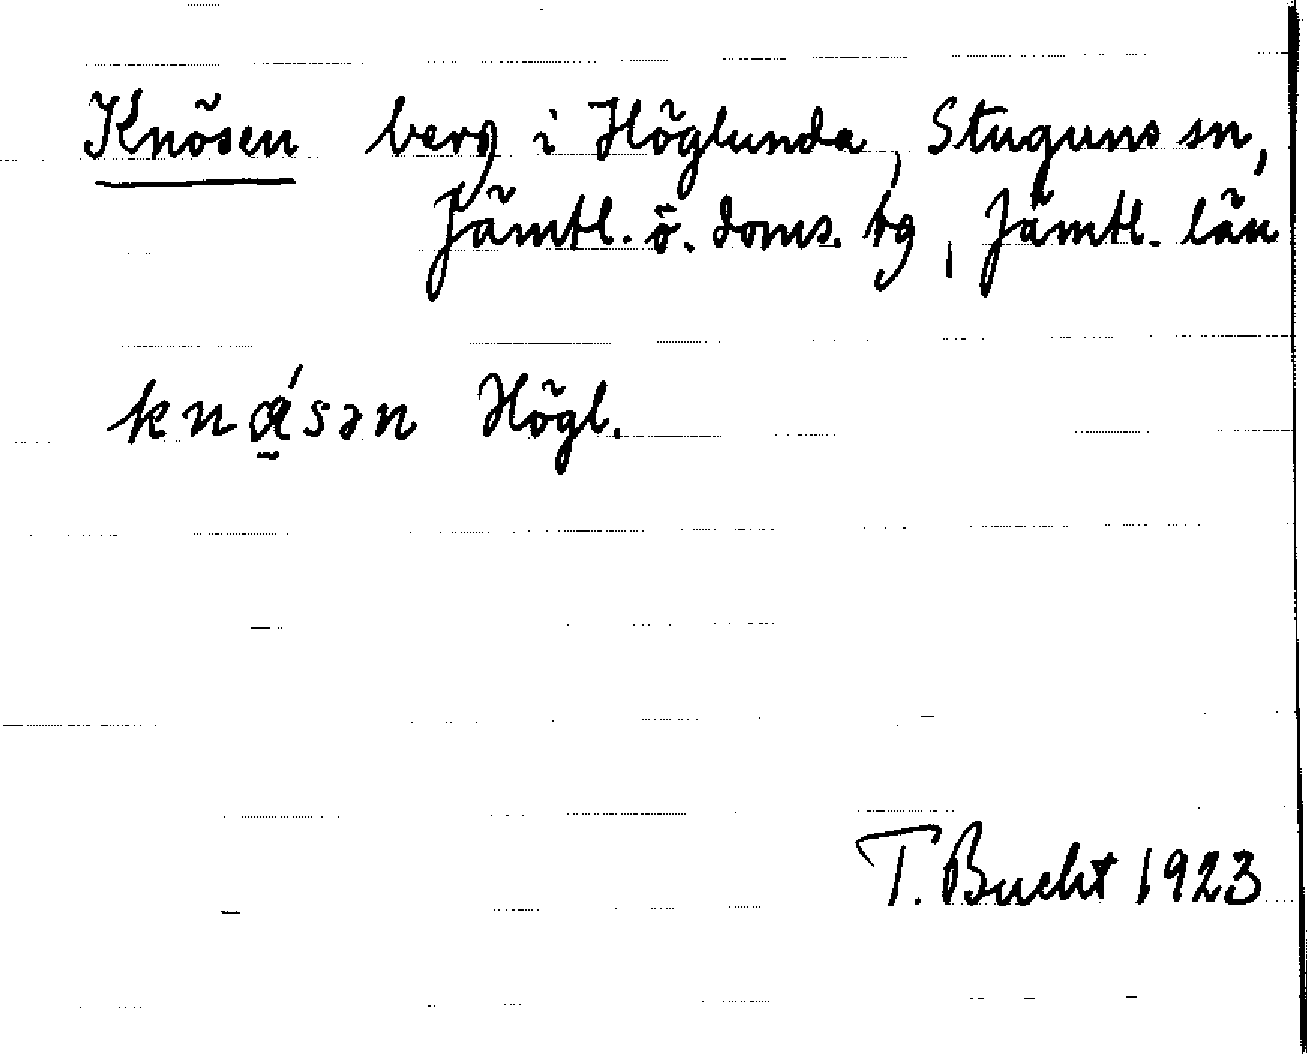 Knösen berg i Höglunda, Stuguns sn,
Jämtl. ö. doms. tg, Jämtl. län
knά̮sən Högl.
T. Bucht 1923